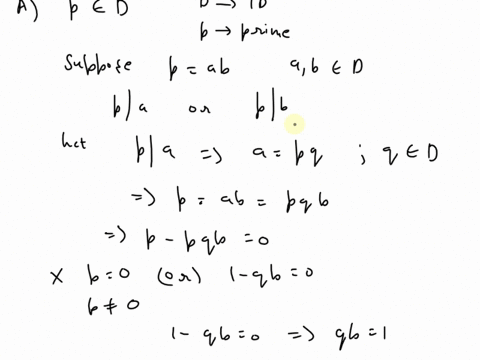 A) p ∈ D D → ID
p → prime
Suppose p = ab a, b ∈ D
p | a or p | b
Let p | a => a = pq ; q ∈ D
=> p = ab = pqb
=> p - pqb = 0
x p = 0 (or) 1 - qb = 0
p ≠ 0
1 - qb = 0 => qb = 1